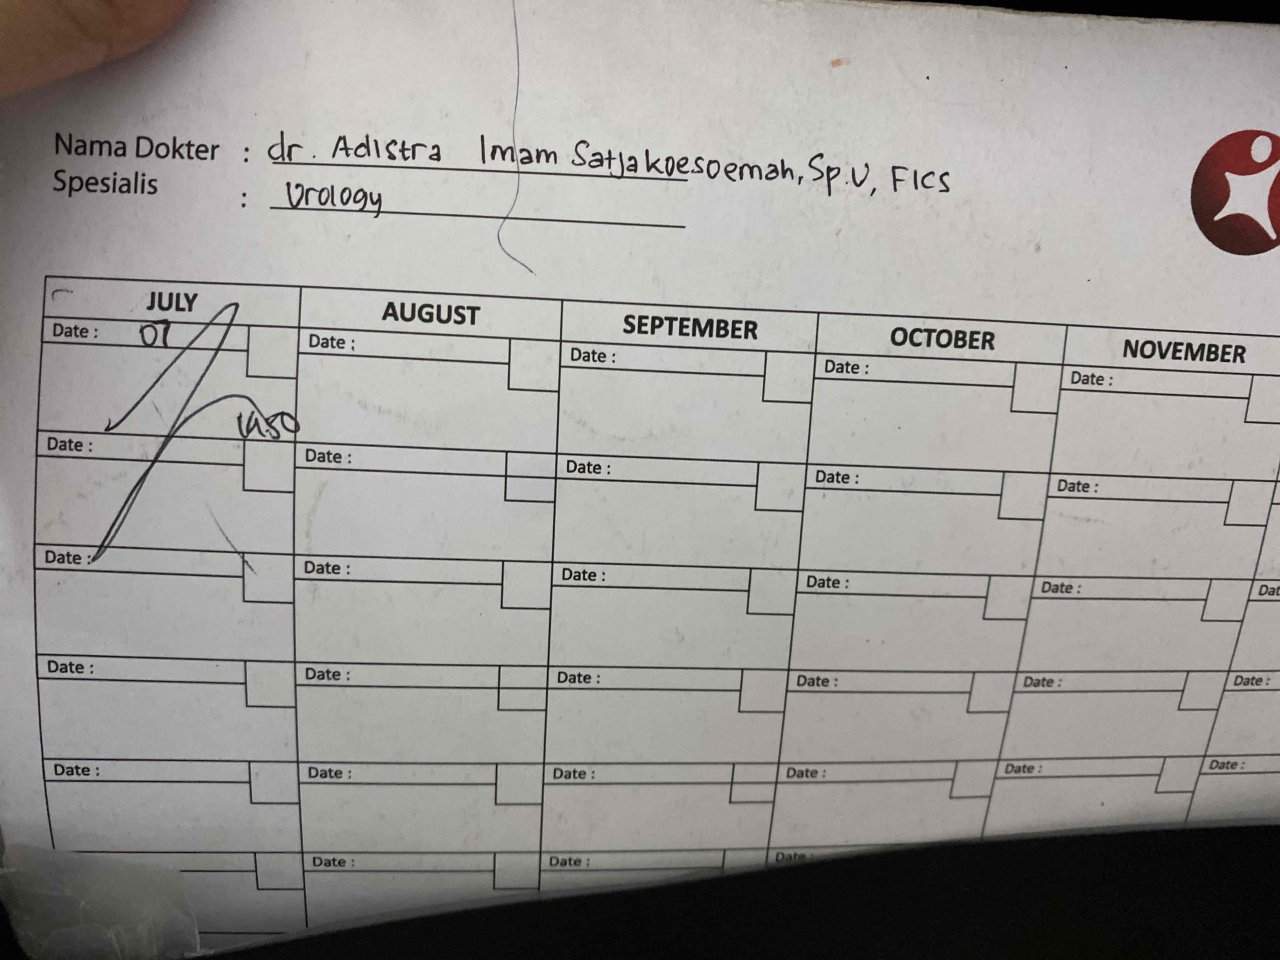 Nama Dokter : dr. Adistra Imam Satjakoesoemah, Sp.U, FICS
Spesialis : Urology
JULY AUGUST SEPTEMBER OCTOBER NOVEMBER
Date : 07 Date : Date : Date : Date :
Date : Date : Date : Date : Date :
Date : Date : Date : Date : Date : Dat
Date : Date : Date : Date : Date : Date :
Date : Date : Date : Date : Date : Date :
Date : Date : Date :